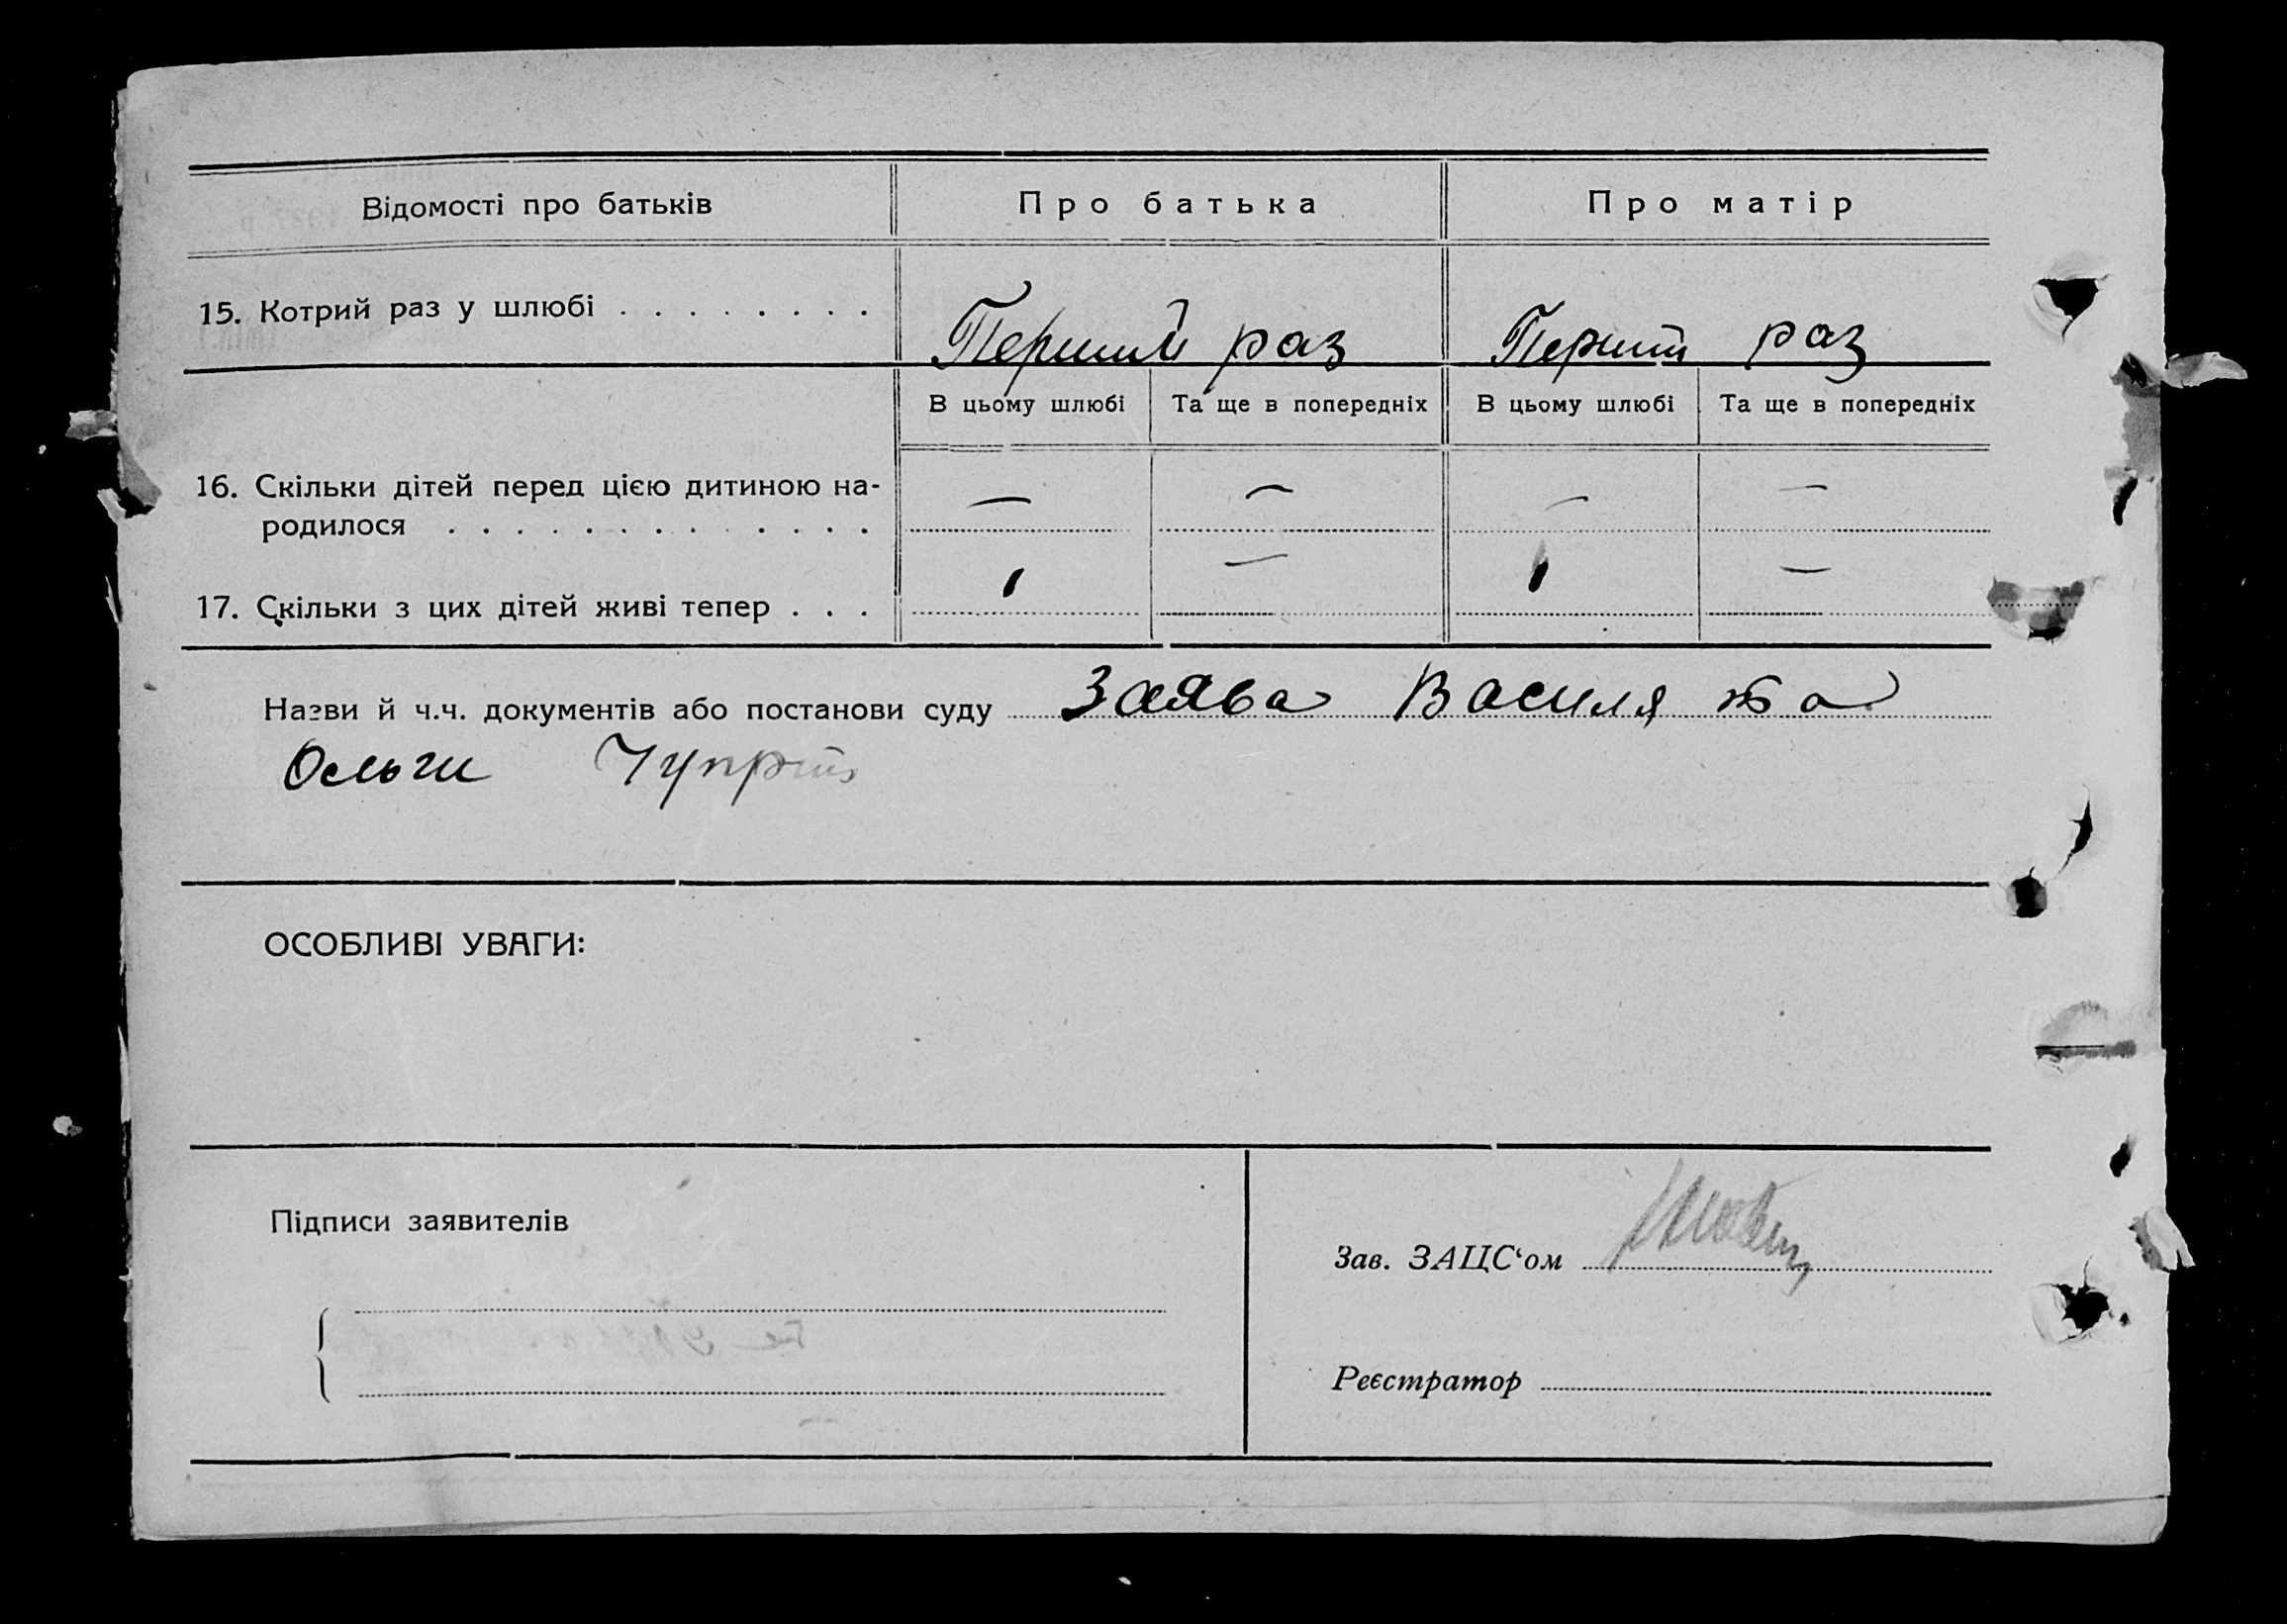 Відомості про батьків Про батька Про матір
15. Котрий раз у шлюбі . . . . . . . . Перший раз Перший раз
В цьому шлюбі Та ще в попередніх В цьому шлюбі Та ще в попередніх
16. Скільки дітей перед цією дитиною на- — — — —
родилося . . . . . . . . . . . . .
17. Скільки з цих дітей живі тепер . . . 1 — 1 —
Назви й ч.ч. документів або постанови суду Заява Василя та
Ольги
ОСОБЛИВІ УВАГИ:
Підписи заявителів
Зав. ЗАЦС‘ом
Реєстратор